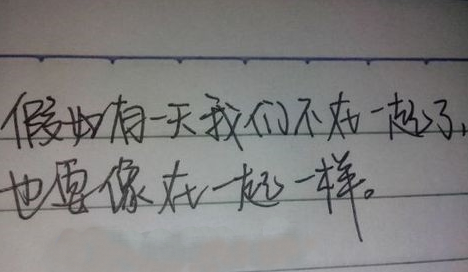 假如有一天我们不在一起了,
也要像在一起一样。